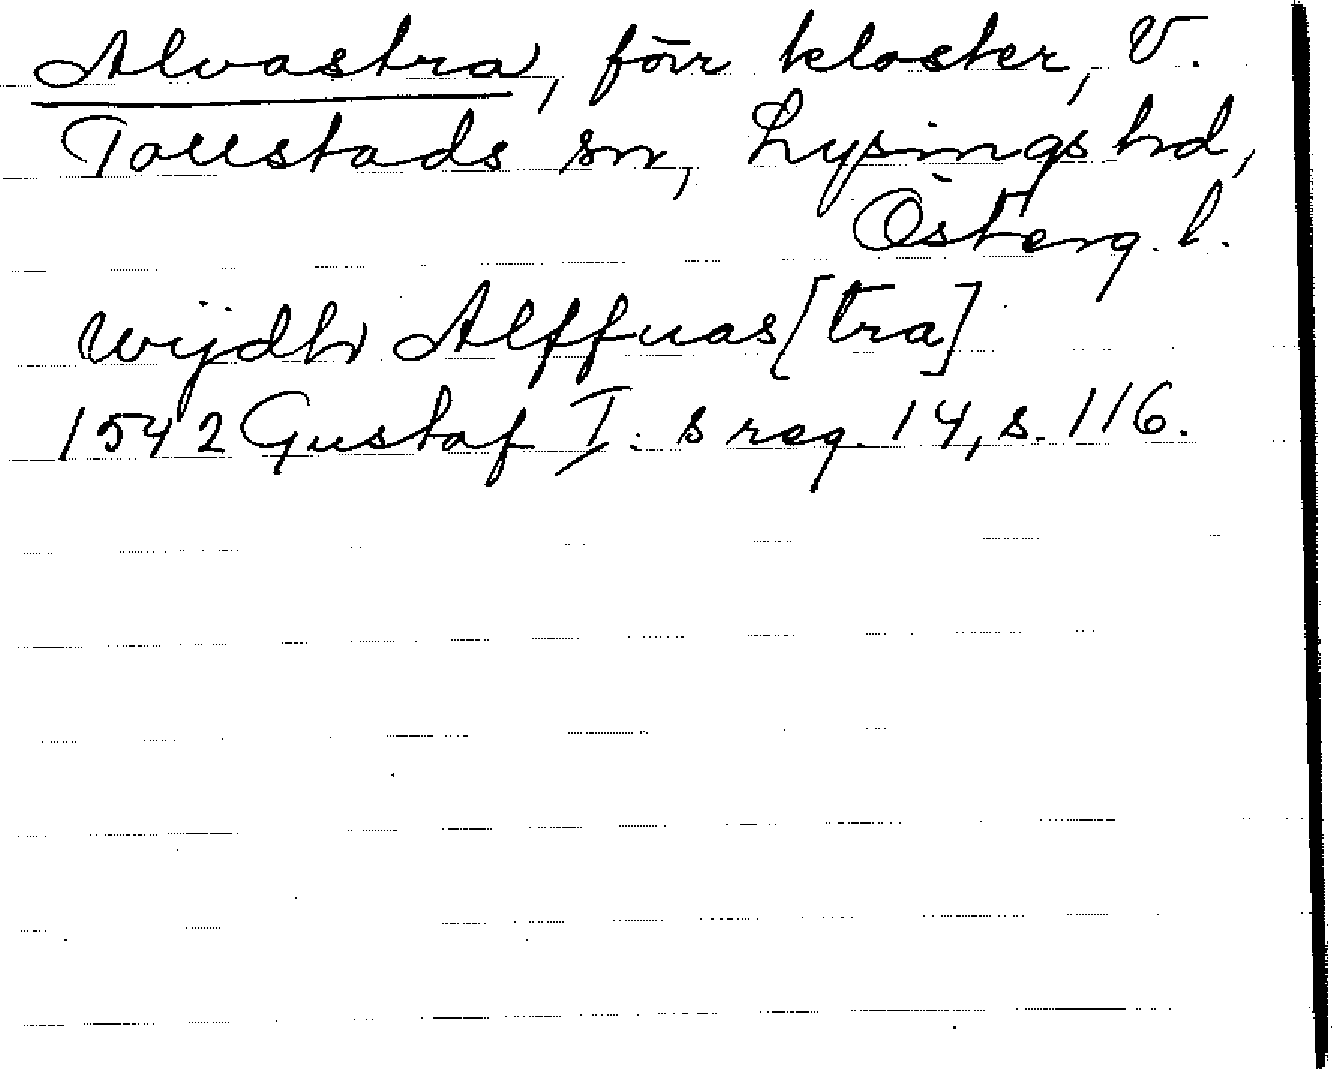 Alvastra, förr kloster, V.
Tollstads sn, Lysings hd,
Österg. l.
wijdh Alffuas[tra]
1542 Gustaf I:s reg. 14, s. 116.